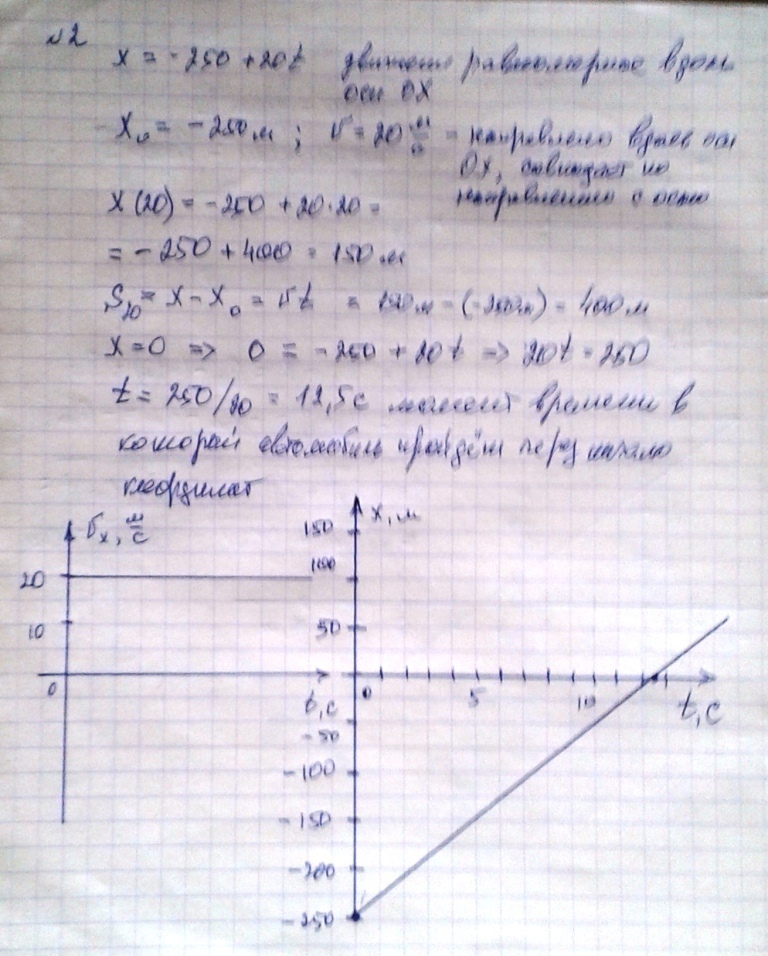 №2
x = -250 + 20t движение равномерное вдоль
оси OX
x₀ = -250м ; V = 20 м/с - направлена вдоль оси
OX, совпадает по
направлению с осью
x(20) = -250 + 20·20 =
= -250 + 400 = 150 м
S₂₀ = x - x₀ = Vt = 150м - (-250м) = 400м
x=0 => 0 = -250 + 20t => 20t = 250
t = 250/20 = 12,5с момент времени в
который автомобиль пройдёт через начало
координат
Vx, м/с
20
10
0
t, с
x, м
150
100
50
0
5
10
t, с
-50
-100
-150
-200
-250